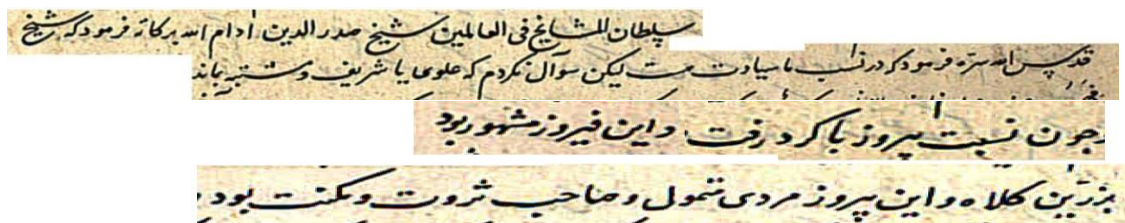 سلطان المشایخ فی العالمین شیخ صدر الدین ادام الله برکاته فرمود که شیخ
قدس الله سره فرمود که در نسب ما سیادت هست لیکن سوال نکردم که علوی یا شریف و مشتبه بماند
چون نسبت پیروز با کرد رفت و این فیروز مشهور بود
بزرین کلاه و این پیروز مردی متمول و صاحب ثروت و مکنت بود